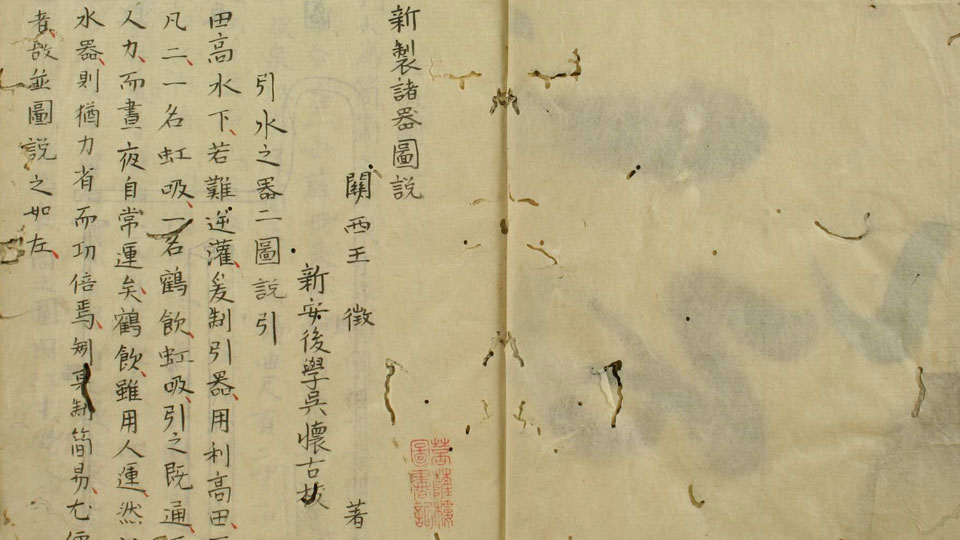 新製諸器圖說
關西王徵著
新安後學吳懷古校
引水之器二圖說引
田高水下若難逆灌爰制引器用利高田
凡二一名虹吸一名鶴飲虹吸引之既通
人力而晝夜自常運矣鶴飲雖用人運然
水器則猶力省而功倍焉矧其制簡易尤便
者故並圖說之如左